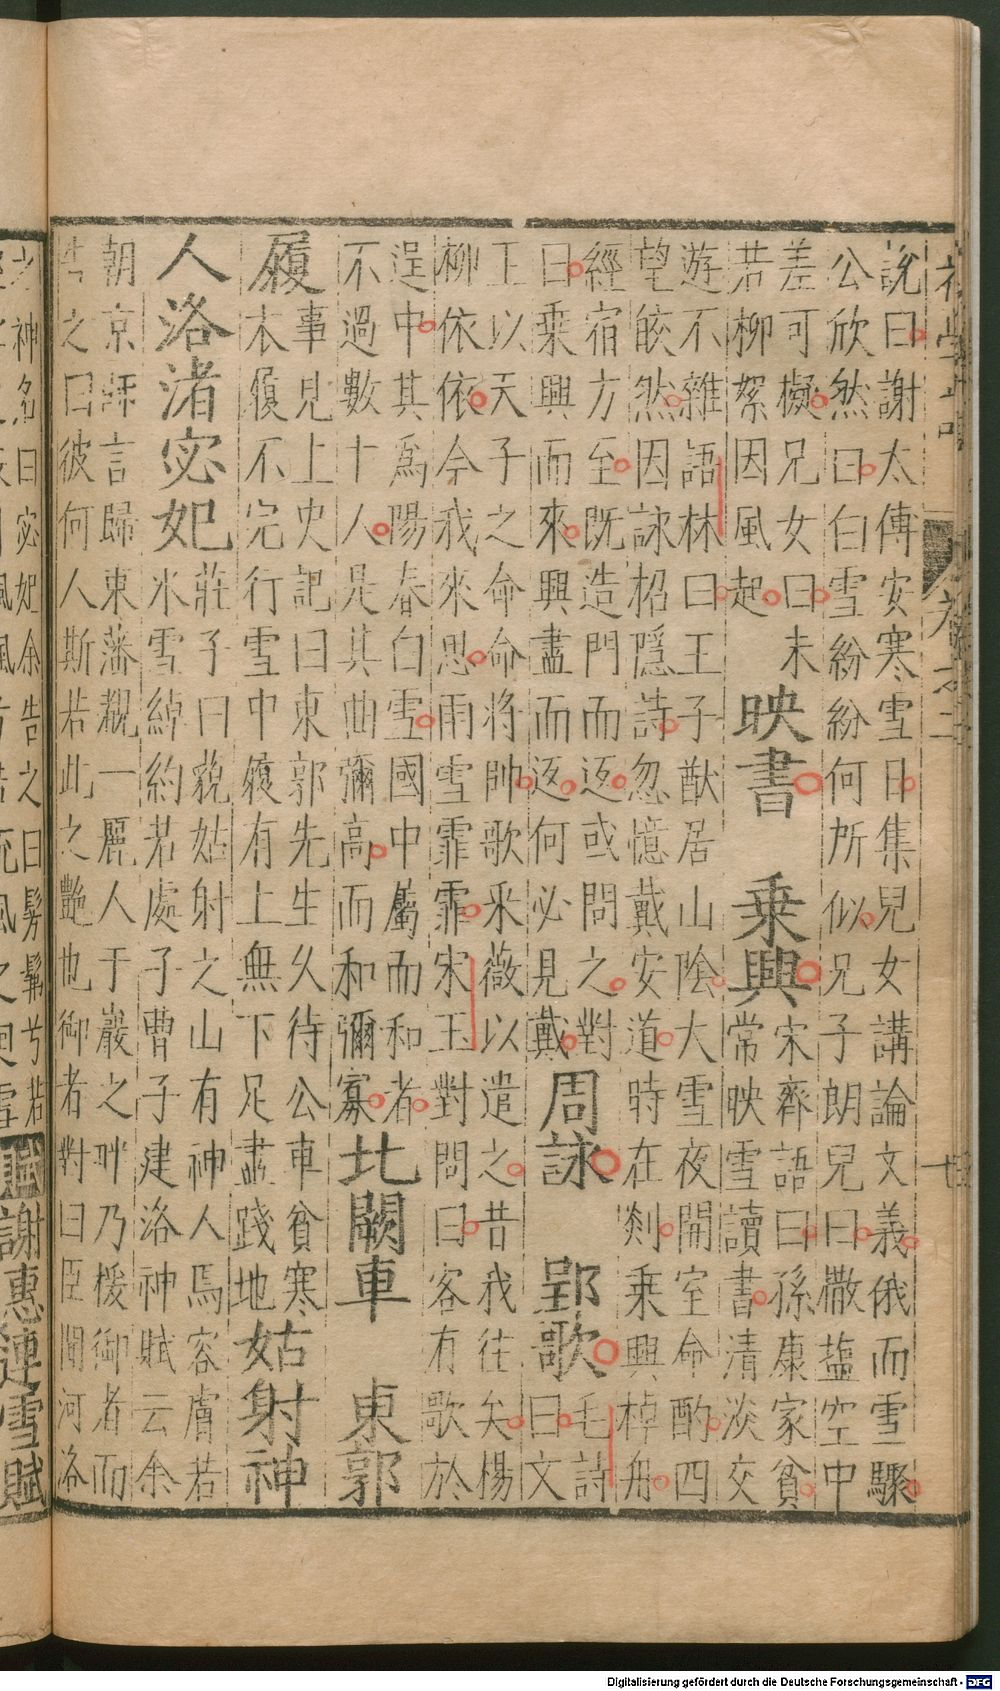 初學記 卷之二
說曰謝太傅安寒雪日集兒女講論文義俄而雪驟
公欣然曰白雪紛紛何所似兄子朗兒曰撒鹽空中
差可擬兄女曰未
若柳絮因風起
映書 乘興
宋齊語曰孫康家貧
常映雪讀書清淡交
遊不雜語林曰王子猷居山陰大雪夜開室命酌四
望皎然因詠招隱詩忽憶戴安道時在剡乘興棹舟
經宿方至既造門而返或問之對
曰乘興而來興盡而返何必見戴
周詠 郢歌
毛詩
曰文
王以天子之命命將帥歌采薇以遣之昔我往矣楊
柳依依今我來思雨雪霏霏宋玉對問曰客有歌於
逞中其爲陽春白雪國中屬而和者
不過數十人是其曲彌高而和彌寡
北闕車 東郭
履
事見上史記曰東郭先生久待公車貧寒
衣履不完行雪中履有上無下足盡踐地
姑射神
人洛渚宓妃
莊子曰藐姑射之山有神人焉容膚若
氷雪綽約若處子曹子建洛神賦云余
朝京師言歸東藩覩一麗人于巖之畔乃援御者而
告之曰彼何人斯若此之艷也御者對曰臣聞河洛
之神名曰宓妃余告之曰髣髴兮若
賦 謝惠連雪賦
Digitalisierung gefördert durch die Deutsche Forschungsgemeinschaft - DFG